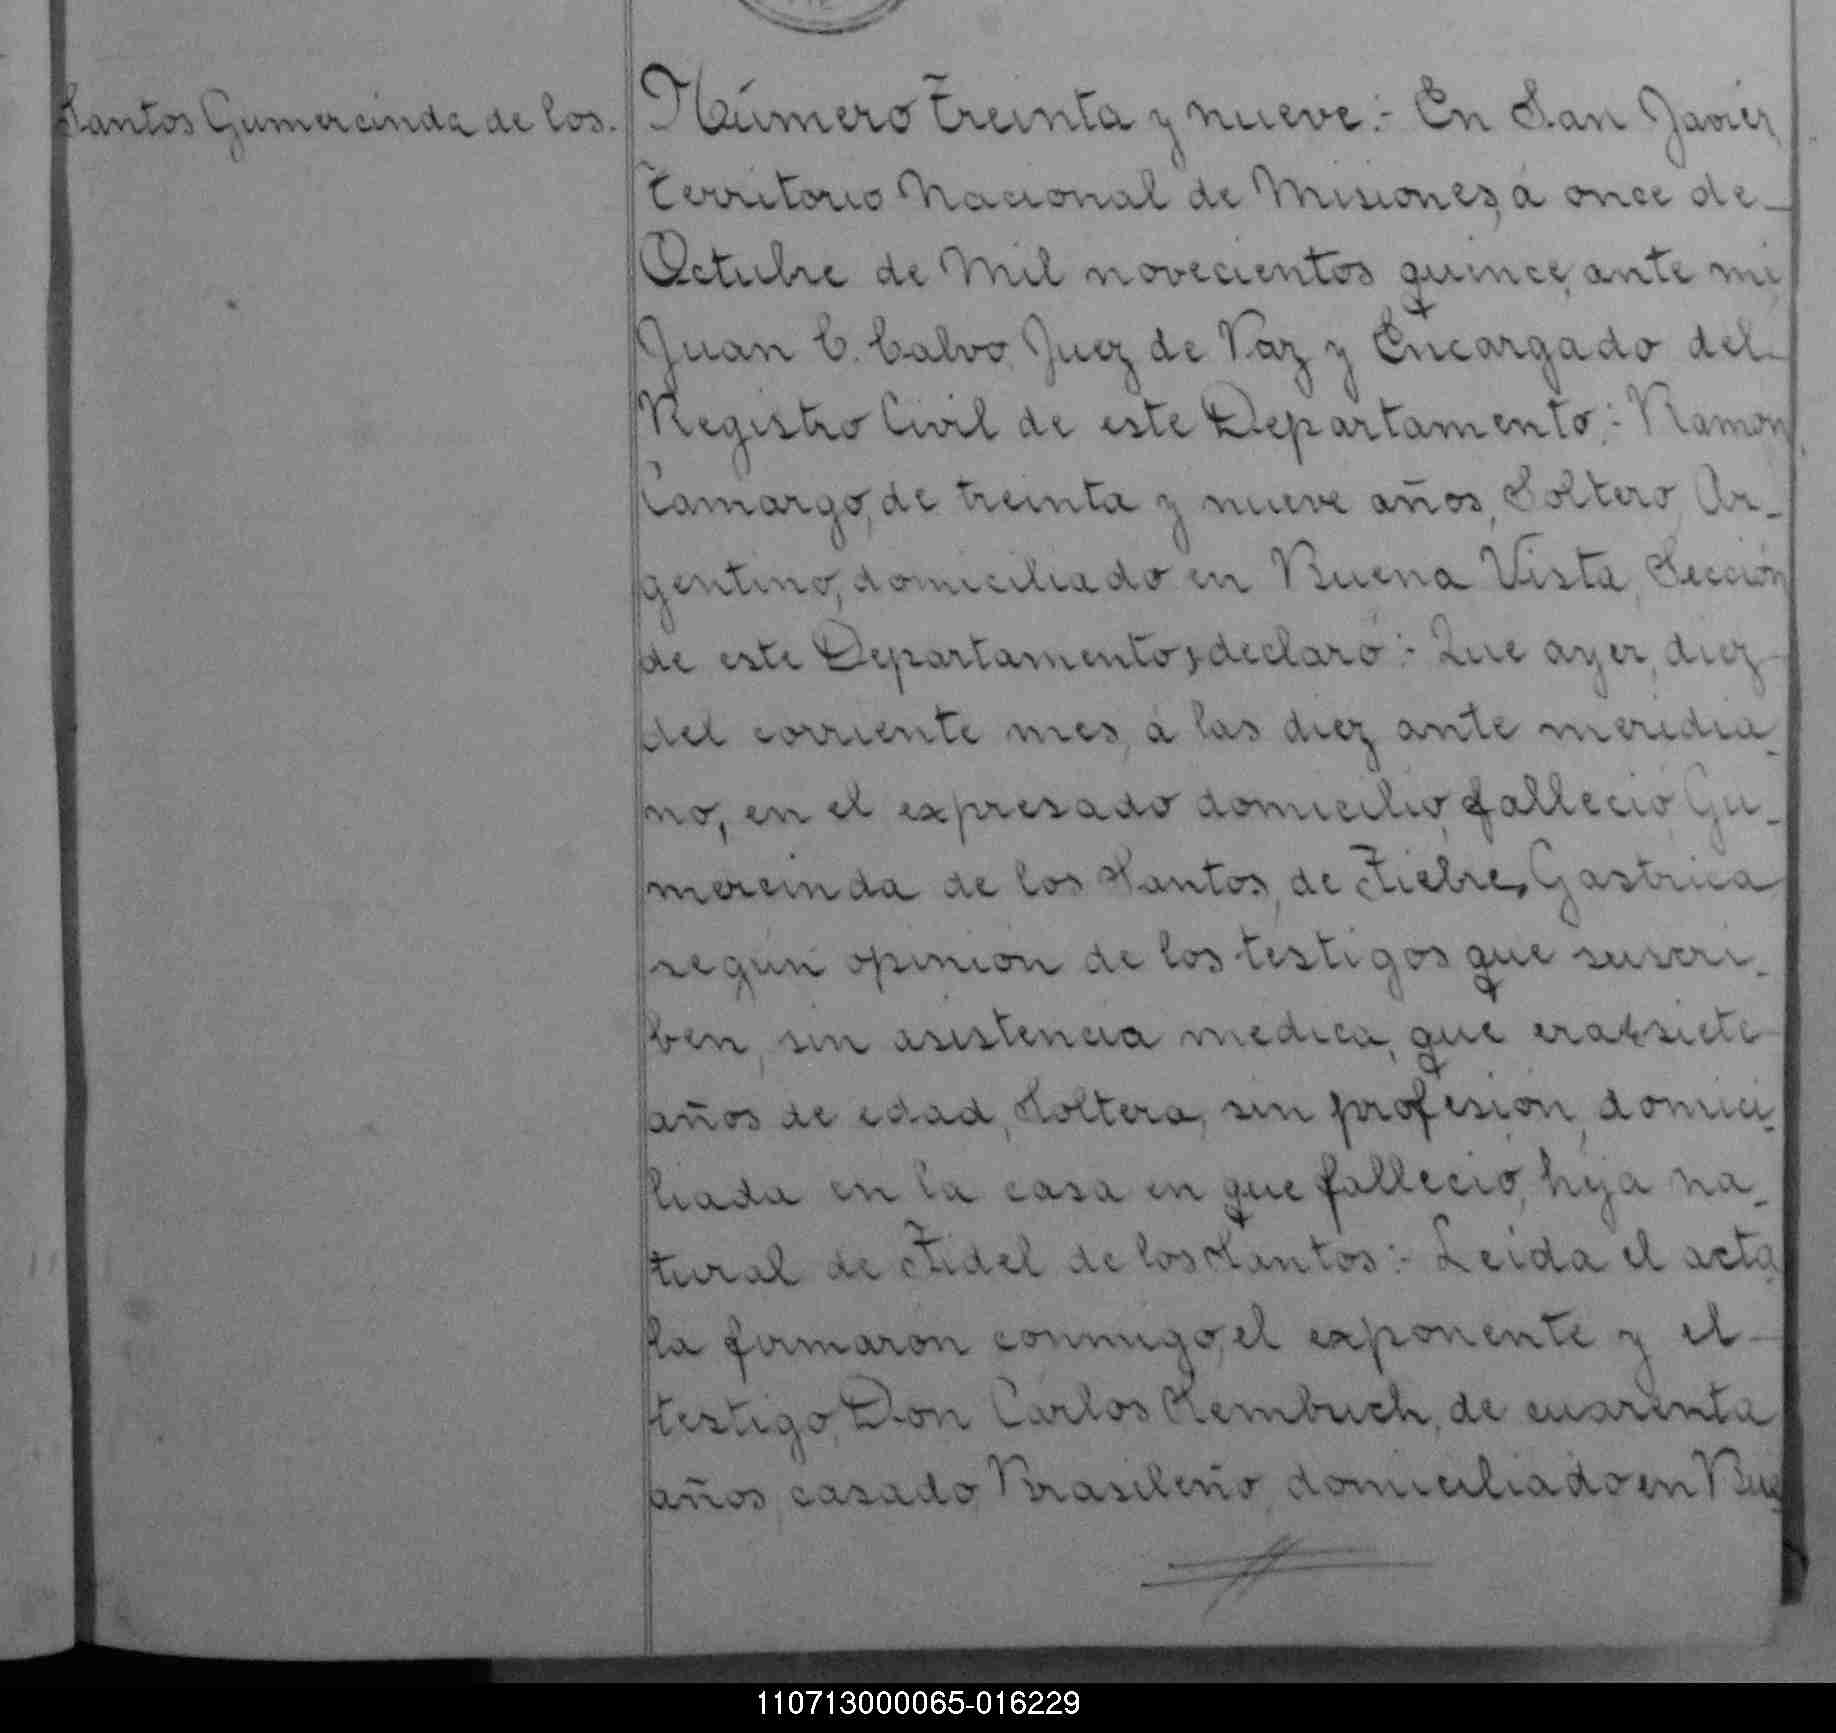 Santos Gumercinda de los.
Número treinta y nueve:- En San Javier,
territorio Nacional de Misiones, á once de
Octubre de Mil novecientos quince, ante mi,
Juan C. Calvo, Juez de Paz y Encargado del
Registro Civil de este Departamento:- Ramon
Camargo, de treinta y nueve años, Soltero, Ar-
gentino, domiciliado en Buena Vista, Sección
de este Departamento, declaró:- Que ayer, diez
del corriente mes, á las diez ante meridia-
no, en el expresado domicilio, falleció Gu-
mercinda de los Santos, de Fiebre Gastrica
según opinión de los testigos que suscri-
ben, sin asistencia medica, que era siete
años de edad, Soltera, sin profesión, domici-
liada en la casa en que falleció, hija na-
tural de Fidel de los Santos:- Leida el acta,
la firmaron conmigo, el exponente y el
testigo, Don Carlos Rembuch, de cuarenta
años, casado, Brasileño, domiciliado en Bue
110713000065-016229